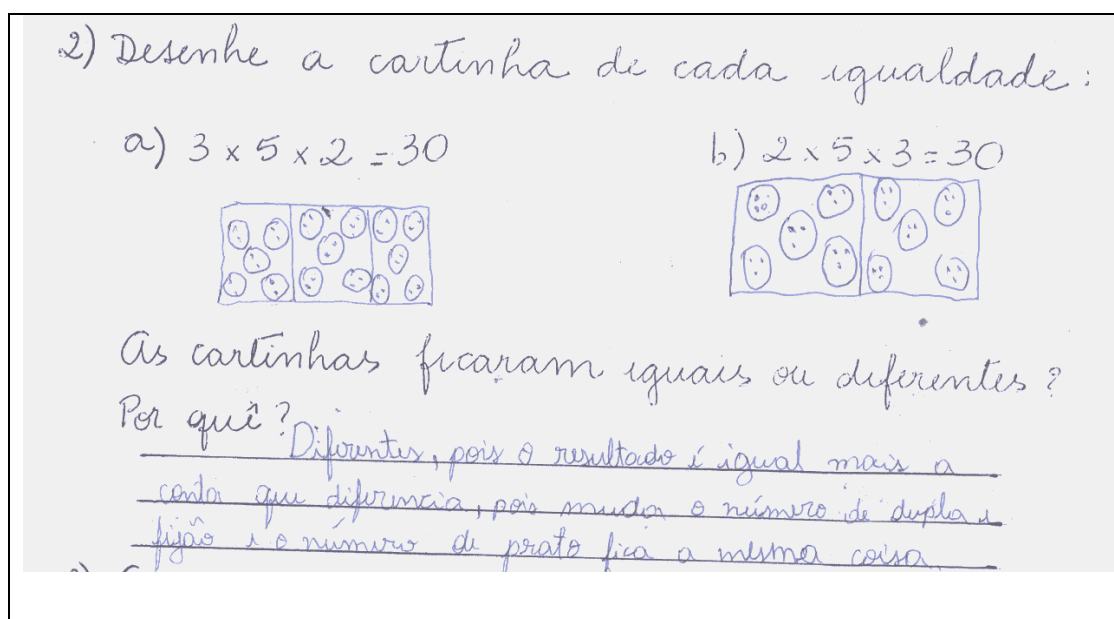 2) Desenhe a cartinha de cada igualdade:
a) 3 x 5 x 2 = 30 b) 2 x 5 x 3 = 30
As cartinhas ficaram iguais ou diferentes?
Por quê?
Diferentes, pois o resultado é igual mais a
conta que diferencia, pois muda o número de dupla e
fijão e o número de prato fica a mesma coisa.